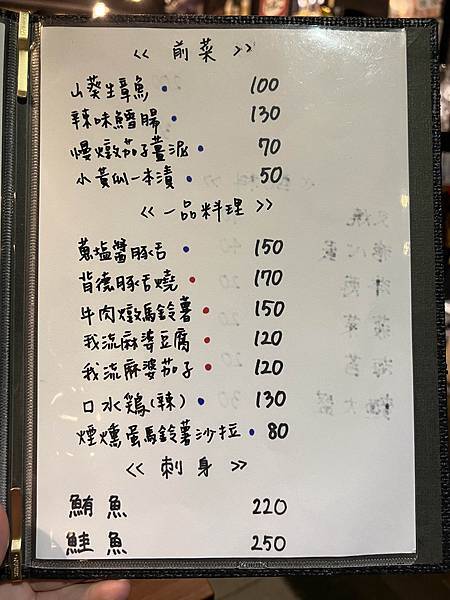 << 前菜 >>
山葵生章魚 • 100
辣味鱈腸 • 130
慢燉茄子薑泥 • 70
小黃瓜一本漬 • 50
<< 一品料理 >>
蔥塩醬豚舌 • 150
背德豚舌燒 • 170
牛肉燉馬鈴薯 • 150
我流麻婆豆腐 • 120
我流麻婆茄子 • 120
口水鶏(辣) • 130
煙燻蛋馬鈴薯沙拉 • 80
<< 刺身 >>
鮪魚 220
鮭魚 250